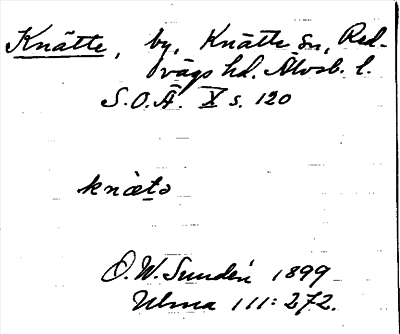 Knätte, by, Knätte sn, Red-
vägs hd. Älvsb. l.
S.O.Ä. X s. 120
knætə
O.W. Sundén 1899
Ulma 111:272.